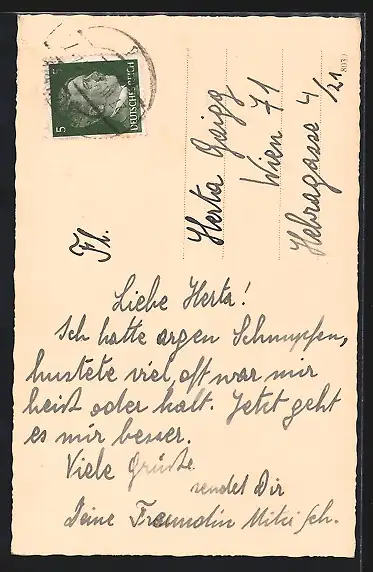 5 5
DEUTSCHES REICH
8039
Frl.
Herta Gaigg
Wien 71
Hebragasse 4/21
Liebe Herta!
Ich hatte argen Schnupfen,
hustete viel, oft war mir
heiß oder kalt. Jetzt geht
es mir besser.
Viele Grüße
sendet Dir
Deine Freundin Mitzi Sch.